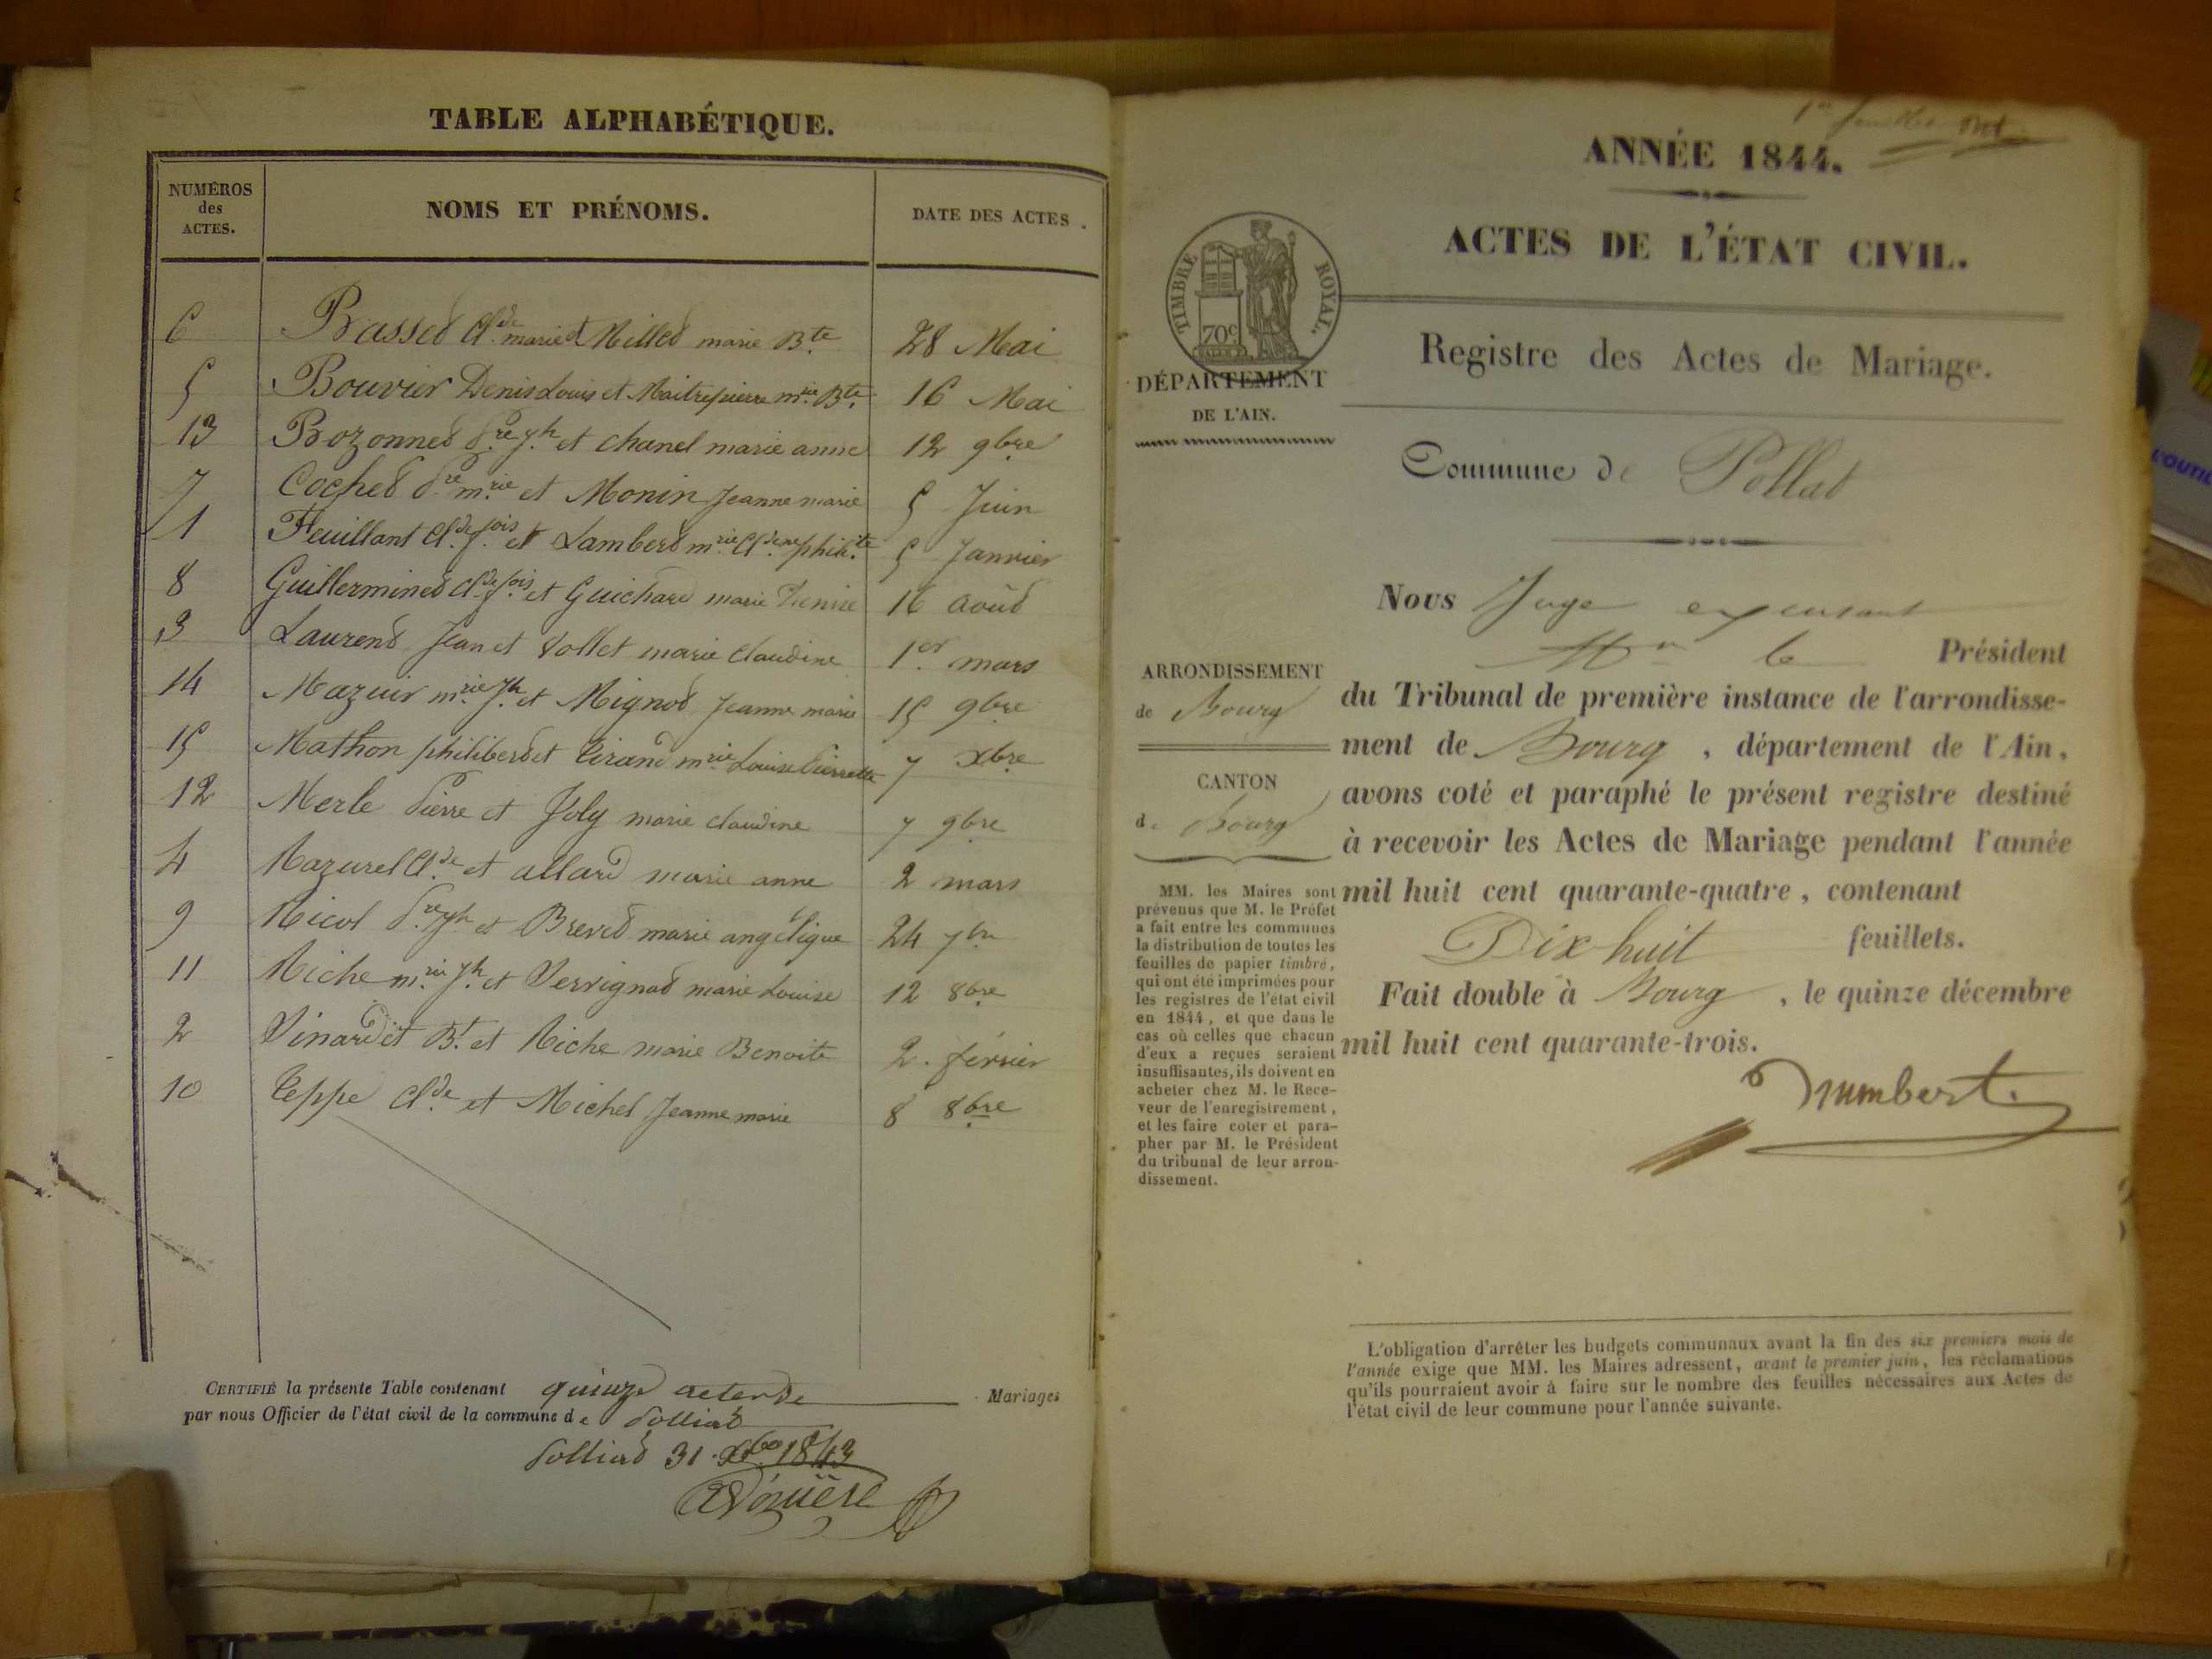 TABLE ALPHABÉTIQUE.
NUMÉROS des ACTES.
NOMS ET PRÉNOMS.
DATE DES ACTES.
6 Basset Cl.de marie et Millet marie B.te 28 Mai
5 Bouvier Denis Louis et Maitrepierre m.rie B.te 16 Mai
13 Bozonnet P.re j.h et Chanel marie anne 12 9bre
7 Cochet P.re m.rie et Monin Jeanne marie 5 Juin
1 Feuillant Cl.de f.ois et Lambert m.rie Cl.dine phili.te 5 Janvier
8 Guillerminet Cl.de f.ois et Guichard marie Denise 16 août
3 Laurent Jean et Vollet marie Claudine 1.er mars
14 Mazuir m.rie j.h et Mignot Jeanne marie 15 9bre
15 Mathon philibert et Tirand m.rie Louise Pierrette 7 Xbre
12 Merle Pierre et Joly marie claudine 7 9bre
4 Nazurel Cl.de et allard marie anne 2 mars
9 Nicol P.re j.h et Brevet marie angélique 24 7bre
11 Riche m.rie j.h et Perrignat marie Louise 12 8bre
2 Vinardet B.t et Riche marie Benoite 2. février
10 Teppe Cl.de et Michel Jeanne marie 8 8bre
CERTIFIÉ la présente Table contenant quinze actes de Mariages
par nous Officier de l'état civil de la commune de Polliat
Polliat 31 Xbre 1843
1er feuillet
ANNÉE 1844.
ACTES DE L'ÉTAT CIVIL.
TIMBRE ROYAL.
70c
DÉPARTEMENT
DE L'AIN.
Registre des Actes de Mariage.
Commune de Pollat
ARRONDISSEMENT
de Bourg
CANTON
de Bourg
MM. les Maires sont
prévenus que M. le Préfet
a fait entre les communes
la distribution de toutes les
feuilles de papier timbré,
qui ont été imprimées pour
les registres de l'état civil
en 1844, et que dans le
cas où celles que chacun
d'eux a reçues seraient
insuffisantes, ils doivent en
acheter chez M. le Rece-
veur de l'enregistrement,
et les faire coter et para-
pher par M. le Président
du tribunal de leur arron-
dissement.
Nous Juge
Mr le Président
du Tribunal de première instance de l'arrondisse-
ment de Bourg, département de l'Ain,
avons coté et paraphé le présent registre destiné
à recevoir les Actes de Mariage pendant l'année
mil huit cent quarante-quatre, contenant
Dix huit feuillets.
Fait double à Bourg, le quinze décembre
mil huit cent quarante-trois.
L'obligation d'arrêter les budgets communaux avant la fin des six premiers mois de
l'année exige que MM. les Maires adressent, avant le premier juin, les réclamations
qu'ils pourraient avoir à faire sur le nombre des feuilles nécessaires aux Actes de
l'état civil de leur commune pour l'année suivante.
L'OUTIL